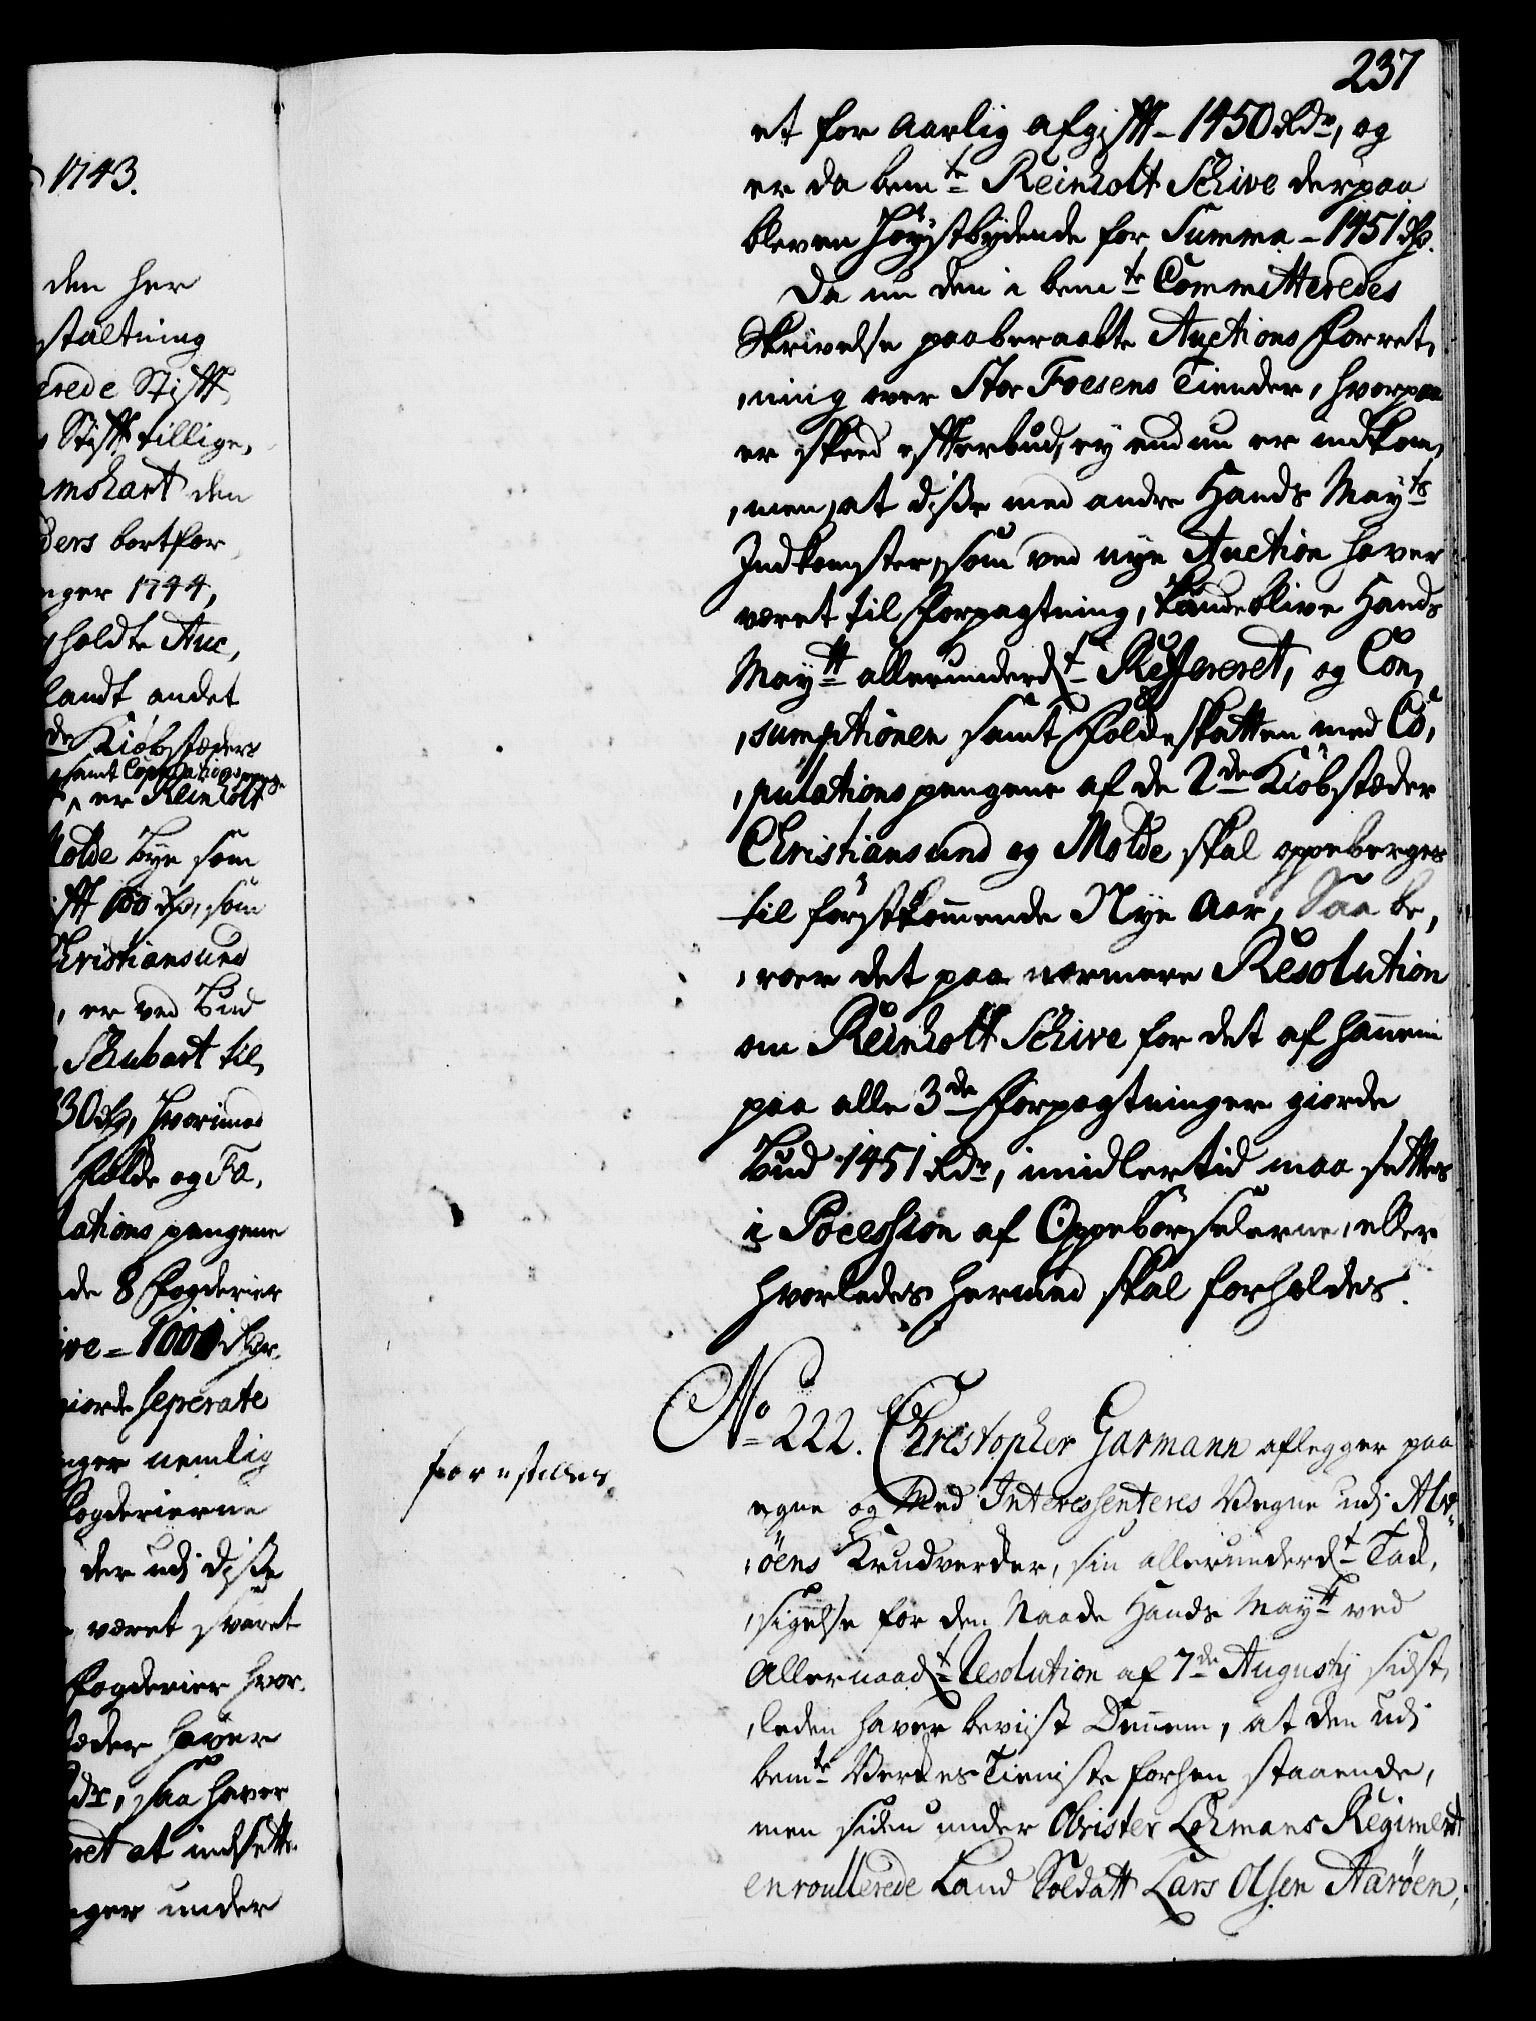 1743.
den her
staltning
erede Stifft
Stifft tillige,
mshart den
ders bortfor
nger 1744,
holdte Auc,
landt andet
de Kiöbstæders
samt Copulations penge
er Reinholt
Molde Bye som
100 rdr, som
Christiansund
, er ved Bud
Schubart til,
30 rdr, hvorimod
Folde og Fa,
lations pengene
de 8 Fogderier
ive = 1001 rdr.
giorde seperate
nger nemlig
Fogderierne
der udj disse
været svaret
Fogderier hvor,
stæder haver
rdr, saa haver
ret at indsette
nger under
237
et for aarlig afgifft - 1450 Rdr, og
er da bemte Reinholt Schive derpaa
bleven Høystbydende for Summa - 1451 rdr.
Da nu den i bemte Committeredes
Skrivelse paaberaabte Auctions Forret,
,ning over Stor Foesens Tiender, hvorpaa
er skeed efterbud, ey endnu er indkom,
,men, at disse med andre Hands Mayts
Indkomster, som ved nye Auction haver
været til Forpagtning, kunde blive Hands
Maytt allerunderdt Refereret, og Con,
,sumptionen samt Folde skatten med Co,
,pulations pengene af de 2de Kiöbstæder
Christiansund og Molde skal oppeberges
til förstkommende Nye Aar, Saa be,
,roer det paa nærmere Resolution
om Reinholt Schive for det af hannem
paa alle 3de Forpagtninger giorde
Bud 1451 Rdr, imidlertid maa settes
i Pocession af Oppebörselerne, eller
hvorledes hermed skal forholdes.
No 222. Christopher Garmann aflegger paa
forestilles,
egne og Med Interessenteres Vegne udj Alv,
,öens Krudverder, sin allerunderdt Tack,
,sigelse for den Naade Hands Maytt ved
Allernaadt Resolution af 7de Augustj sidst,
,leden haver beviist Dennem, at den udj
bemte Verkes Tieniste forhen staaende,
men siden under Obrister Lohmans Regiment
enroullerede Land Soldatt Lars Olsen Aarøen,